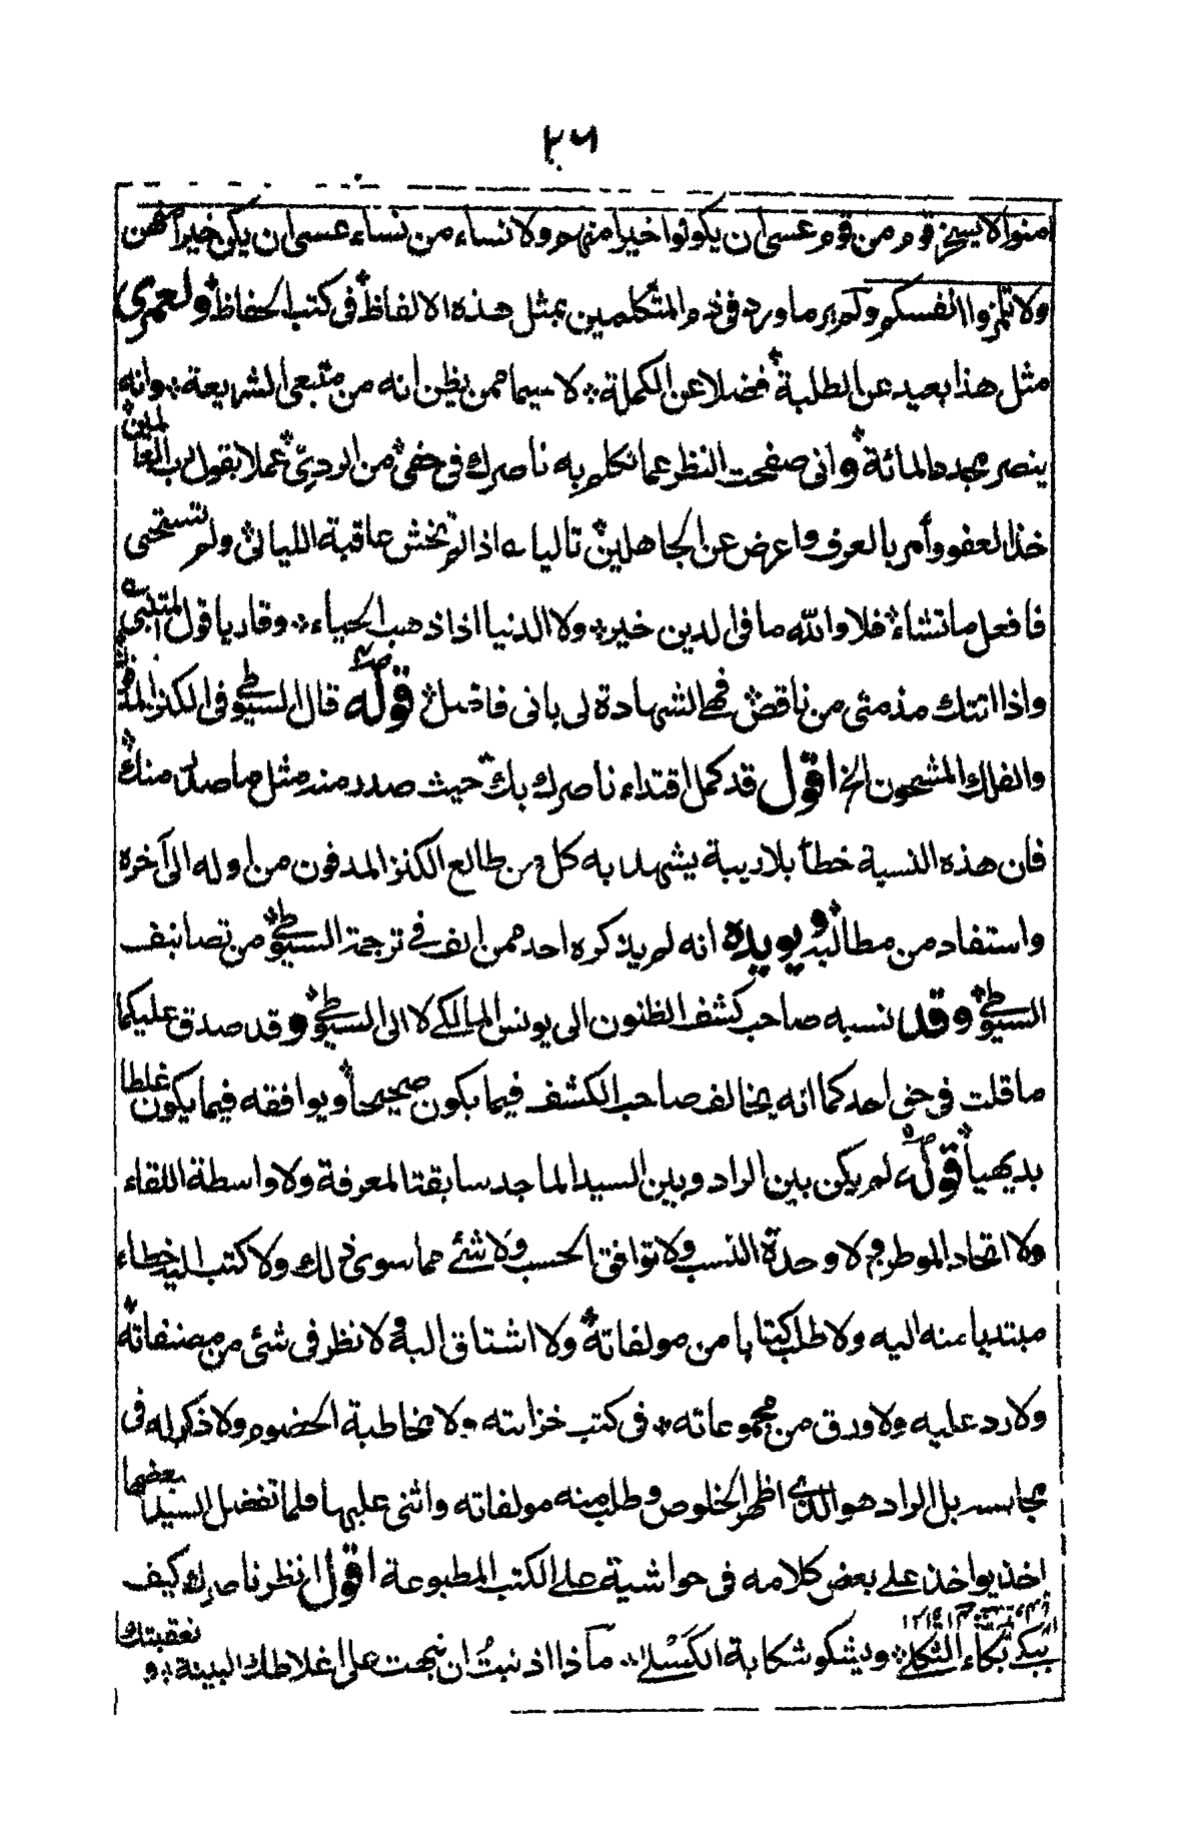 ٢٦
منوا لا يسخر قوم من قوم عسى ان يكونوا خيرا منهم ولا نساء من نساء عسى ان يكن خيرا منهن
ولا تلمزوا انفسكم ولم ير ما ورد في ذم المتكلمين بمثل هذه الالفاظ في كتب الحفاظ ولعمري
مثل هذا بعيد عن الطلبة فضلا عن الكملة لا سيما ممن يظن انه من متبعي الشريعة وانه
ينصر مجدد المائة واني صفحت النظر عما تكلم به ناصرك في حقي من الردي عملا بقول رب العالمين
خذ العفو وأمر بالعرف واعرض عن الجاهلين تاليا اذا لم تخش عاقبة الليالي ولم تستحي
فافعل ما تشاء فلا والله ما في الدين خير ولا الدنيا اذا ذهب الحياء وقاريا قول المتنبي
واذا اتتك مذمتي من ناقص فهي الشهادة لي باني فاضل قوله قال السيوطي في الكنز المدفون
والفلك المشحون الخ اقول قد كمل اقتداء ناصرك بك حيث صدر منه مثل ما صدر منك
فان هذه النسبة خطأ بلا ريبة يشهد به كل من طالع الكنز المدفون من اوله الى آخره
واستفاد من مطالبه ويويده انه لم يذكره احد ممن الف في ترجمة السيوطي من تصانيف
السيوطي وقد نسبه صاحب كشف الظنون الى يونس المالكي لا الى السيوطي وقد صدق عليكما
ما قلت في حق احدكما انه يخالف صاحب الكشف فيما يكون صحيحا ويوافقه فيما يكون غلطا
بديهيا قوله لم يكن بين الراد وبين السيد الماجد سابقة المعرفة ولا واسطة اللقاء
ولا اتحاد الموطن ولا وحدة النسب ولا توافق الحسب ولا شئ مما سوى ذلك ولا كتب اليه خطاء
مبتديا منه اليه ولا طلب كتابا من مولفاته ولا اشتاق اليه ولا نظر في شئ من مصنفاته
ولا رد عليه ولا ورق من مجموعاته في كتب خزانته ولا مخاطبة الخصوم ولا ذكر له في
مجالسه بل الراد هو الذي اظهر الخلوص وطلب منه مولفاته واثنى عليها فلما تفضل السيد ببعضها
اخذ يواخذ على بعض كلامه في حواشيه على الكتب المطبوعة اقول انظر ناصرك كيف
يبكي بكاء الثكلى ويشكو شكاية الكسلى ماذا اذنبتُ ان نبهت على اغلاطك البينة و
تعقبتك